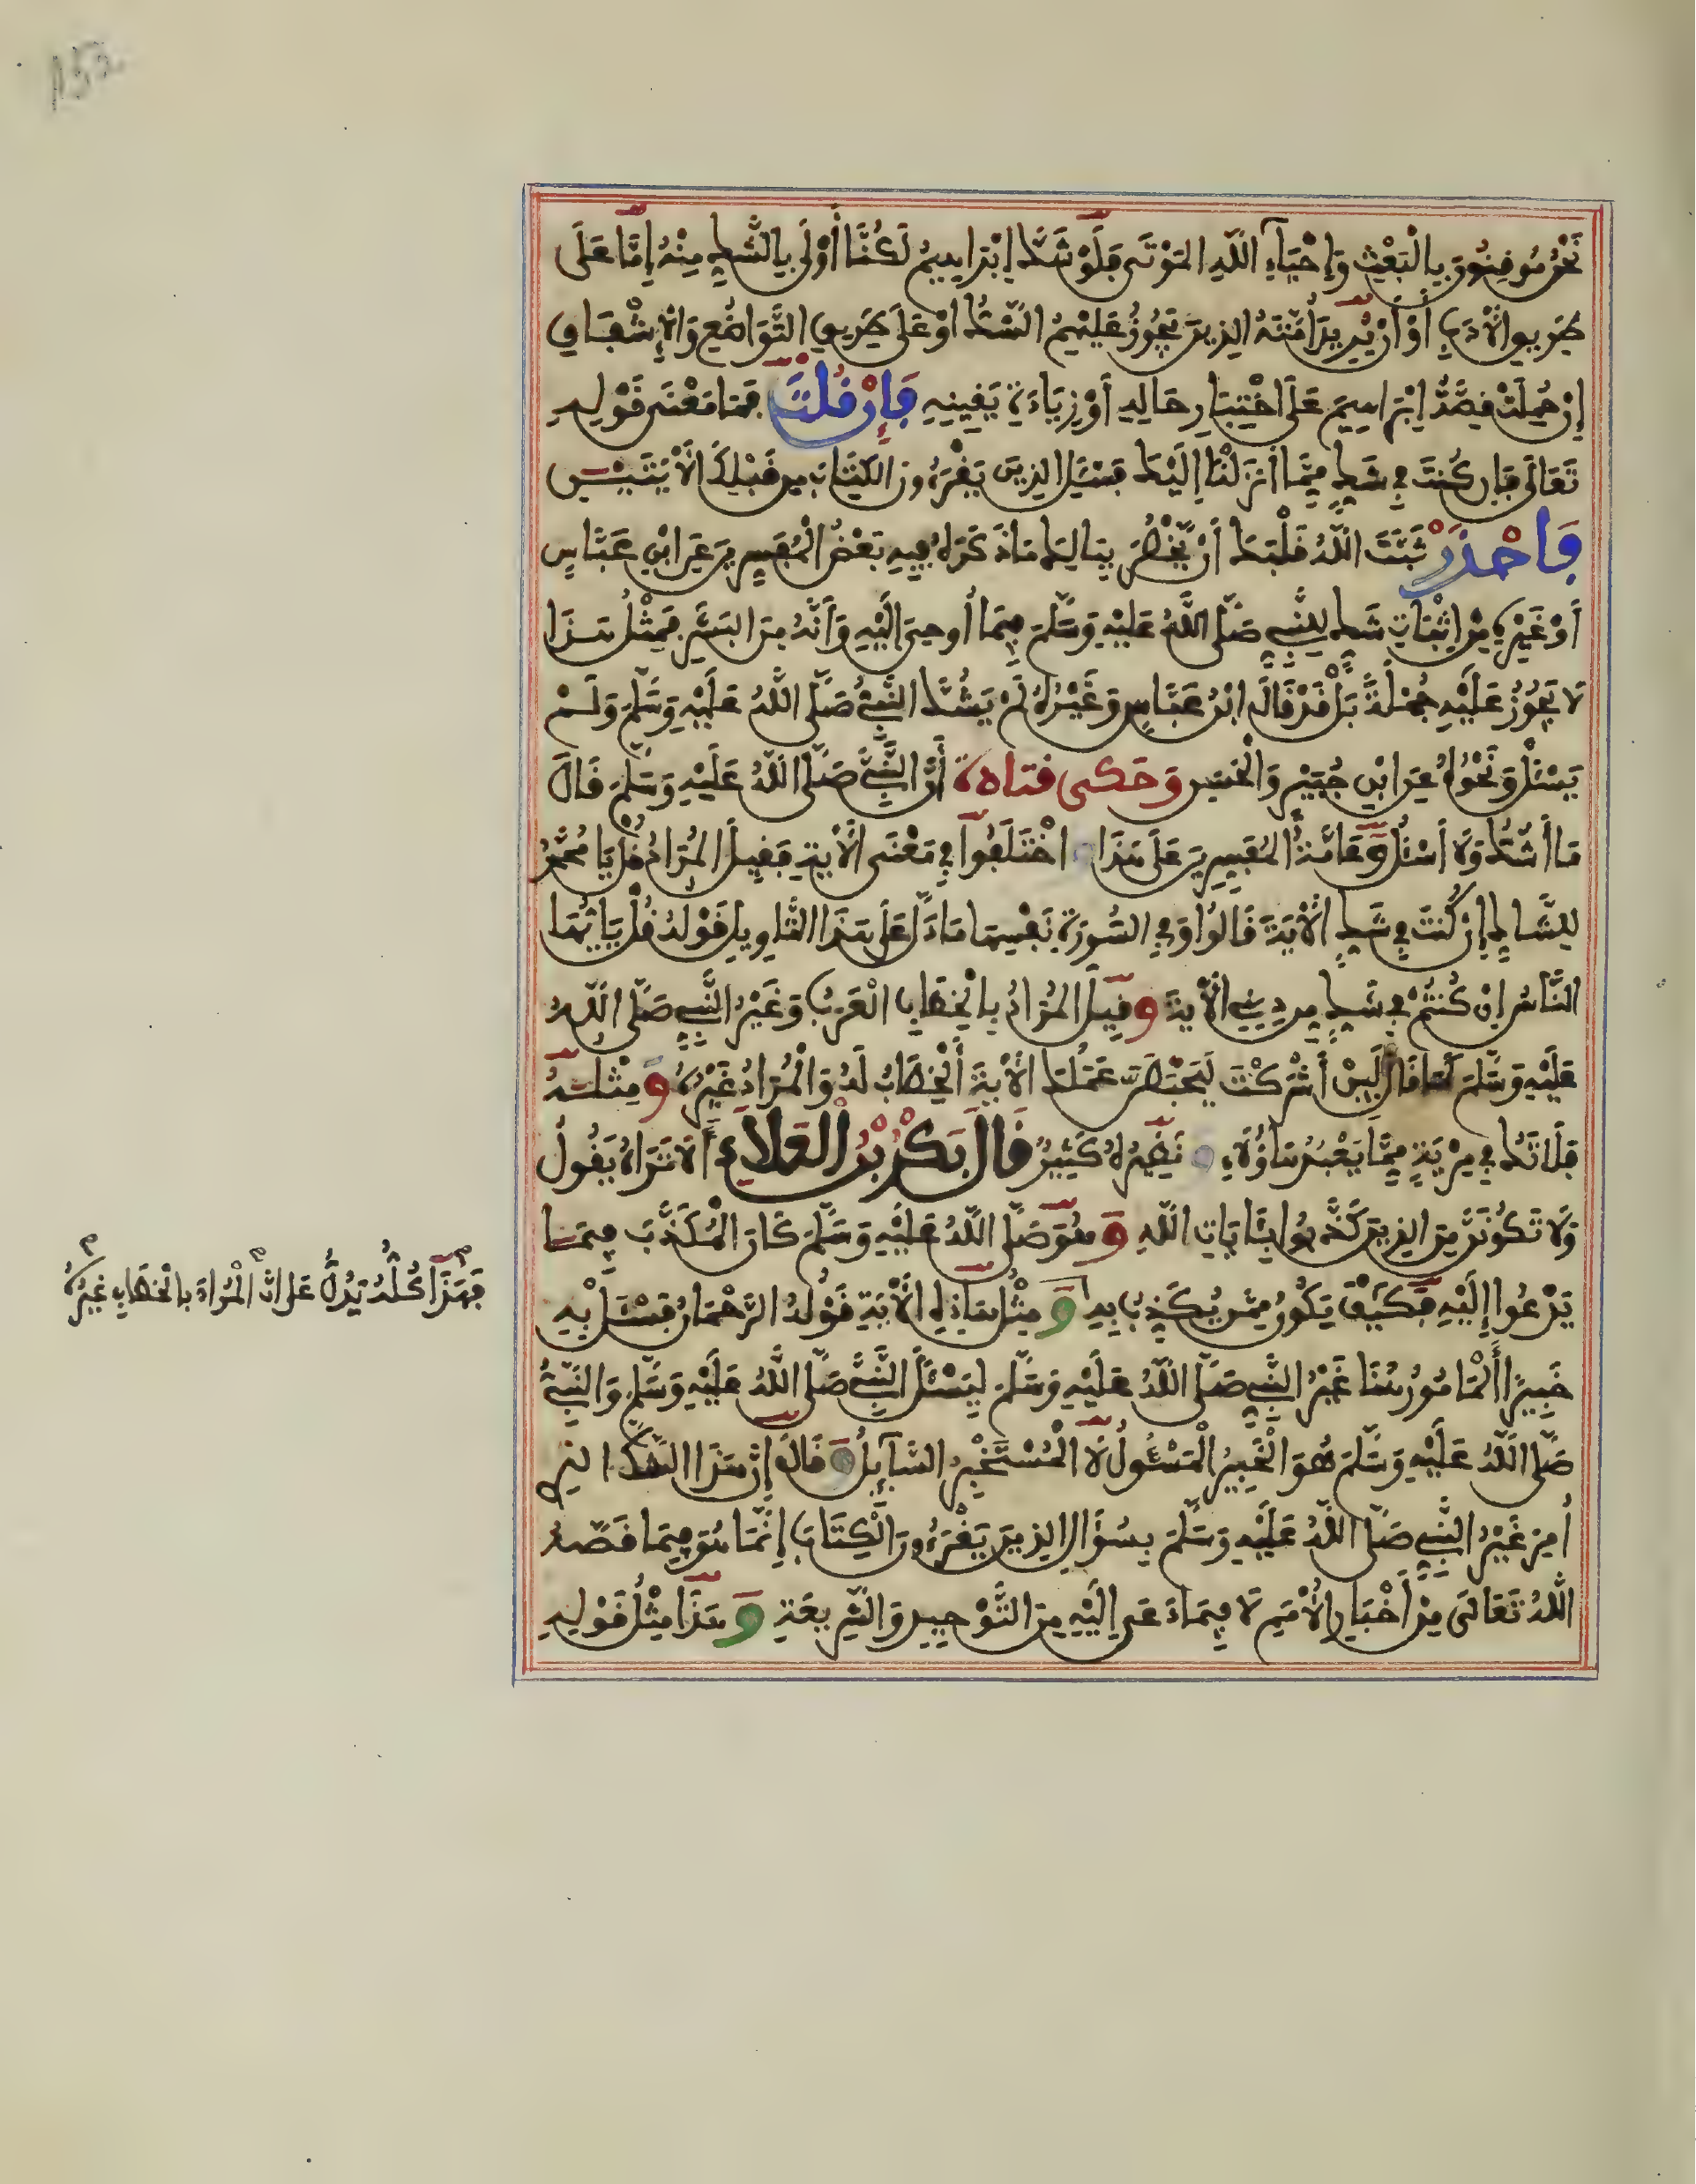 نَحْنُ مُوقِنُونَ بِالْبَعْثِ وَإِحْيَاءِ اللَّهِ الْمَوْتَى فَلَوْ شَكَّ إِبْرَاهِيمُ لَكُنَّا أَوْلَى بِالشَّكِّ مِنْهُ إِمَّا عَلَى
طَرِيقِ الْأَدَبِ أَوْ أَنْ يُرِيدَ أُمَّتَهُ الَّذِينَ يَجُوزُ عَلَيْهِمُ الشَّكُّ أَوْ عَلَى طَرِيقِ التَّوَاضُعِ وَالْإِشْفَاقِ
إِنْ حُمِلَتْ قِصَّةُ إِبْرَاهِيمَ عَلَى اخْتِبَارِ حَالِهِ أَوْ زِيَادَةِ يَقِينِهِ فَإِنْ قُلْتَ فَمَا مَعْنَى قَوْلِهِ
تَعَالَى فَإِن كُنتَ فِي شَكٍّ مِمَّا أَنْزَلْنَا إِلَيْكَ فَسْئَلِ الَّذِينَ يَقْرَءُونَ الْكِتَابَ مِن قَبْلِكَ الْآيَتَيْنِ
فَاحْذَرْ ثَبَّتَ اللَّهُ قَلْبَكَ أَنْ يَخْطُرَ بِبَالِكَ مَا ذَكَرَهُ فِيهِ بَعْضُ الْمُفَسِّرِينَ عَنِ ابْنِ عَبَّاسٍ
أَوْ غَيْرِهِ مِنْ إِثْبَاتِ شَكٍّ لِلنَّبِيِّ صَلَّى اللَّهُ عَلَيْهِ وَسَلَّمَ فِيمَا أُوحِيَ إِلَيْهِ وَأَنَّهُ مِنَ الْبَشَرِ فَمِثْلُ هَذَا
لَا يَجُوزُ عَلَيْهِ جُمْلَةً بَلْ قَدْ قَالَ ابْنُ عَبَّاسٍ وَغَيْرُهُ لَمْ يَشُكَّ النَّبِيُّ صَلَّى اللَّهُ عَلَيْهِ وَسَلَّمَ وَلَمْ
يَسْئَلْ وَنَحْوُهُ عَنِ ابْنِ جُبَيْرٍ وَالْحَسَنِ وَحَكَى قتادة أَنَّ النَّبِيَّ صَلَّى اللَّهُ عَلَيْهِ وَسَلَّمَ قَالَ
مَا أَشُكُّ وَلَا أَسْئَلُ وَعَامَّةُ الْمُفَسِّرِينَ عَلَى هَذَا اخْتَلَفُوا فِي مَعْنَى الْآيَةِ فَقِيلَ الْمُرَادُ قُلْ يَا مُحَمَّدُ
لِلشَّاكِّ إِنْ كُنتَ فِي شَكٍّ الْآيَةَ قَالُوا وَفِي السُّورَةِ نَفْسِهَا مَا دَلَّ عَلَى هَذَا التَّأْوِيلِ قَوْلُهُ قُلْ يَا أَيُّهَا
النَّاسُ إِنْ كُنتُمْ فِي شَكٍّ مِن دِينِي الْآيَةَ وَقِيلَ الْمُرَادُ بِالْخِطَابِ الْعَرَبُ وَغَيْرُ النَّبِيِّ صَلَّى اللَّهُ
عَلَيْهِ وَسَلَّمَ كَمَا قَالَ لَئِنْ أَشْرَكْتَ لَيَحْبَطَنَّ عَمَلُكَ الْآيَةَ الْخِطَابُ لَهُ وَالْمُرَادُ غَيْرُهُ وَمِثْلُهُ
فَلَا تَكُ فِي مِرْيَةٍ مِمَّا يَعْبُدُ هَؤُلَاءِ وَنَظِيرُهُ كَثِيرٌ قَالَ بَكْرُ بْنُ الْعَلَاءِ أَلَا تَرَاهُ يَقُولُ
وَلَا تَكُونَنَّ مِنَ الَّذِينَ كَذَّبُوا بِئَايَاتِ اللَّهِ وَهُوَ صَلَّى اللَّهُ عَلَيْهِ وَسَلَّمَ كَانَ الْمُكَذَّبَ فِيمَا
يَدْعُوا إِلَيْهِ فَكَيْفَ يَكُونُ مِمَّنْ يُكَذِّبُ بِهِ وَمِثْلُ هَاذِهِ الْآيَةِ قَوْلُهُ الرَّحْمَانُ فَسْئَلْ بِهِ
خَبِيرًا الْمَأْمُورُ هُنَا غَيْرُ النَّبِيِّ صَلَّى اللَّهُ عَلَيْهِ وَسَلَّمَ لِيَسْئَلَ النَّبِيَّ صَلَّى اللَّهُ عَلَيْهِ وَسَلَّمَ وَالنَّبِيُّ
صَلَّى اللَّهُ عَلَيْهِ وَسَلَّمَ هُوَ الْخَبِيرُ الْمَسْئُولُ لَا الْمُسْتَخْبِرُ السَّائِلُ وَقَالَ إِنَّ هَذَا الشَّكَّ الَّذِي
أُمِرَ غَيْرُ النَّبِيِّ صَلَّى اللَّهُ عَلَيْهِ وَسَلَّمَ بِسُؤَالِ الَّذِينَ يَقْرَءُونَ الْكِتَابَ إِنَّمَا هُوَ فِيمَا قَصَّهُ
اللَّهُ تَعَالَى مِنْ أَخْبَارِ الْأُمَمِ لَا فِيمَا دَعَى إِلَيْهِ مِنَ التَّوْحِيدِ وَالشَّرِيعَةِ وَهَذَا مِثْلُ قَوْلِهِ
فَهَذَا كُلُّهُ يَدُلُّ عَلَى أَنَّ الْمُرَادَ بِالْخِطَابِ غَيْرُهُ